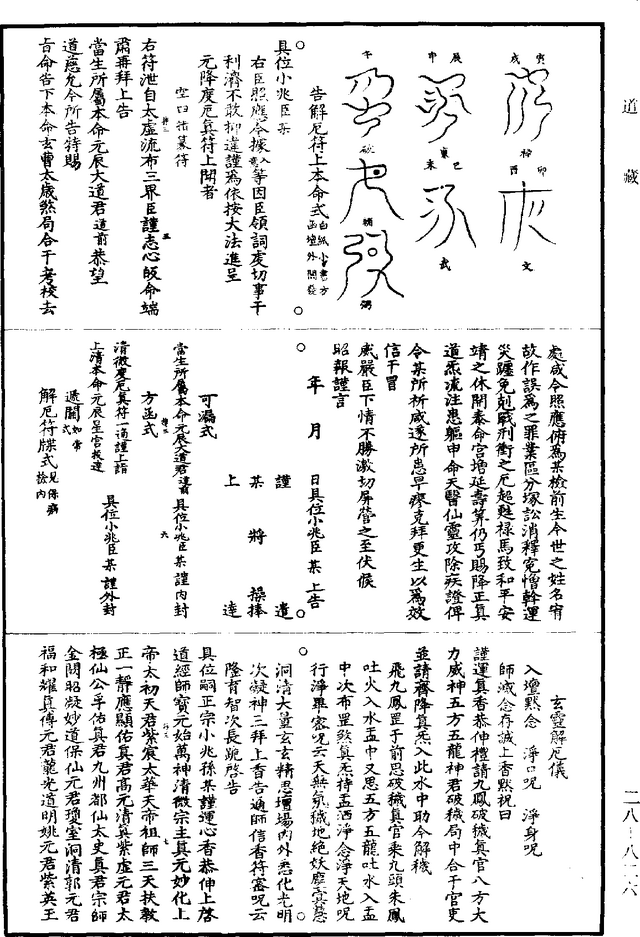 道藏
寅 戌
卯 酉
文
辰 申
巳 未
武
午
破
弼
告解厄符上本命式白紙小書方函壇外開發
具位小兆臣某
右臣照應今據入等因臣領詞虔切事干
利濟不敢抑違謹為依按大法進呈
元降度厄真符上聞者
空白梵篆符
右符泄自太虛流布三界臣謹志心皈命端
肅再拜上告
當生所屬本命元辰大道君道前恭望
道慈允今所告特賜
旨命告下本命玄曹太歲煞局合干考校去
處咸令照應俯為某檢前生今世之姓名宥
故作誤為之罪業區分塚訟消釋冤憎斡運
災躔免剋戰刑衝之厄超甦祿馬致和平安
靖之休開泰命宮增延壽算仍丐賜降正真
道炁流注患軀申命天醫仙靈攻除疾證俾
令某所祈感遂所患早瘳克拜更生以為效
信干冒
威嚴臣下情不勝激切屏營之至伏候
昭報謹言
年 月 日具位小兆臣某上告
謹遣
某將操捧
上達
可漏式
當生所屬本命元辰大道君道前 具位小兆臣某謹內封
方函式
清微度厄真符一通謹上詣
上清本命元辰星宮投達
具位小兆臣某謹外封
遞關式如常
解厄符牒式見保病訟內
玄靈解厄儀
入壇默念 淨口呪 淨身呪
師滅念存誠上香默祝曰
謹運真香恭伸禮請九鳳破穢真官八方大
力威神五方五龍神君破穢局中合干官吏
並請齎降真炁入此水中助今解穢
飛九鳳罡于前思破穢真官乘九頭朱鳳
吐火入水盂中又思五方五龍吐水入盂
中次布罡斂真炁持盂洒淨念淨天地呪
行淨罪密呪云天無氛穢地絕妖塵冥慧
洞清大量玄玄精思壇場內外悉化光明
次凝神三拜上香告通師信香符密呪云
隆育智次長跪啓告
具位嗣正宗小兆孫某謹運心香恭伸上啓
道經師寶元始萬神清微宗主真元妙化上
帝太初天君紫宸太華天帝祖師三天扶教
正一靜應顯佑真君高元清真紫虛元君太
極仙公孚佑真君九州都仙太史真君宗師
金闕昭凝妙道保仙元君瓊室洞清郭元君
福和耀真傅元君龍光道明姚元君紫英王
二八—八二六